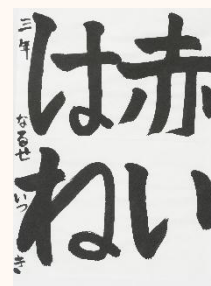 赤い
はね
三年 なるせ いつき